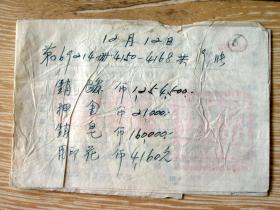 12月12日
第69214册4150-4168共19张
销 币1,254,500.-
押金 币21,000.-
销皂 币160,000.-
印花 币4,160元